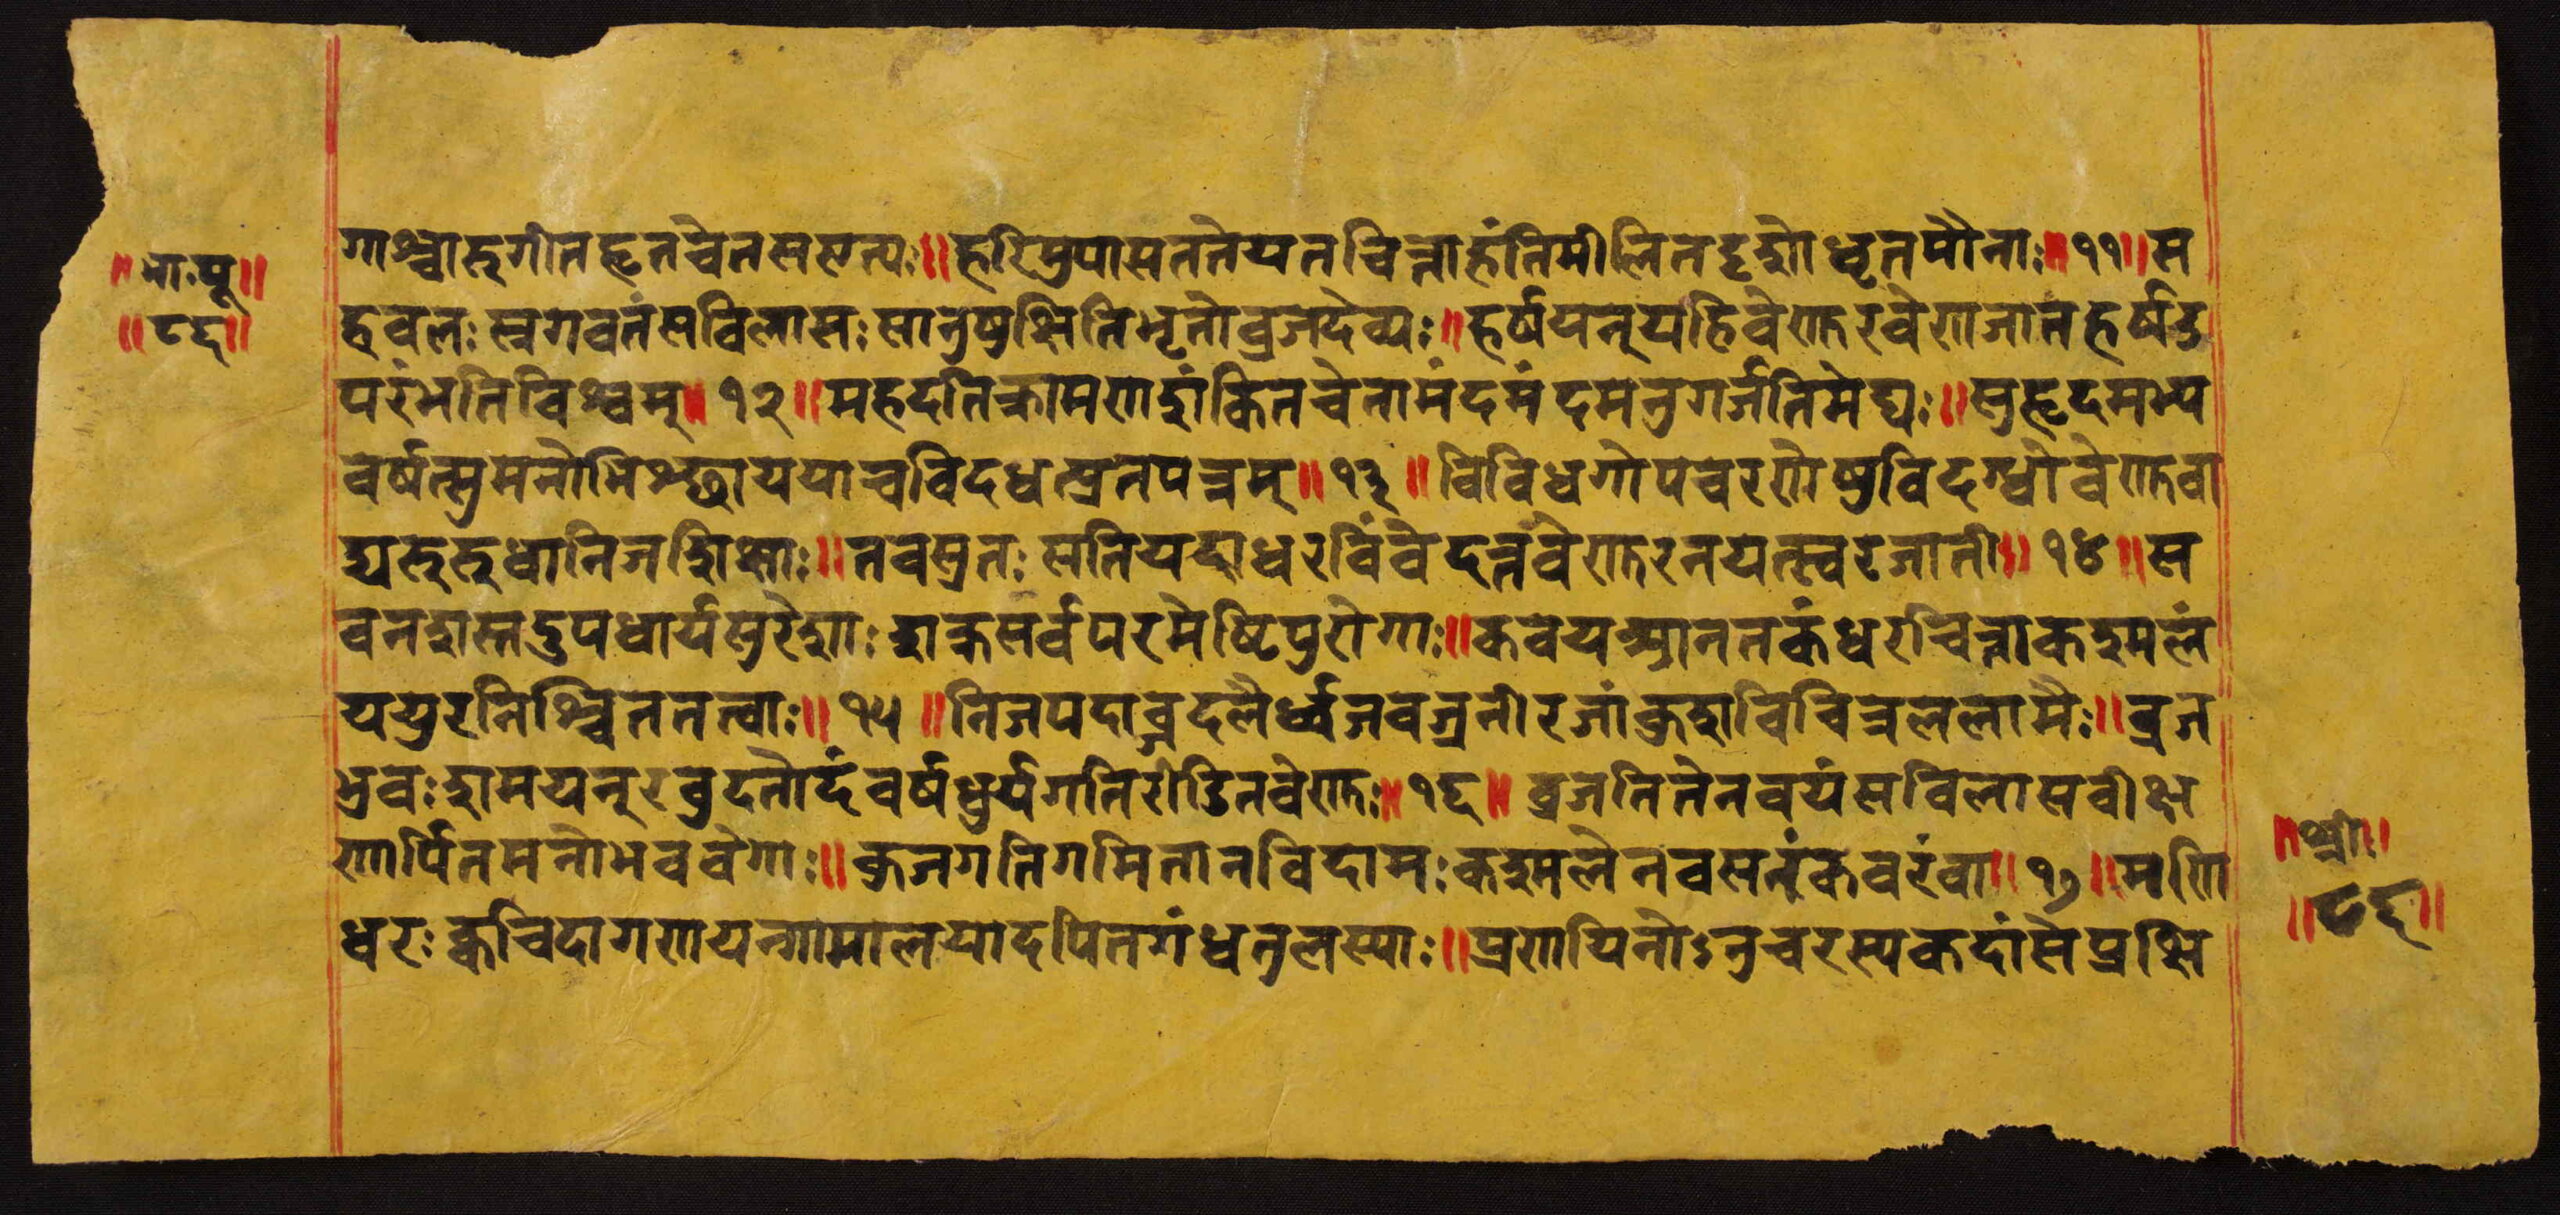 ॥ भा॰पू॥
॥८६॥
गाश्चारुगीतहृतचेतसएत्य॥ हरिमुपासततेयतचित्ताहंतमीलितदृशोधृतमौनाः॥११॥स
हबलः स्रगवतंसविलासः सानुषुक्षितिभृतोव्रजदेव्यः॥ हर्षयन्यर्हिवेणुरवेणजातहर्षउ
परंभतिविश्वम्॥१२॥महदतिक्रमणशंकितचेतामंदमंदमनुगर्जतिमेघः॥सुहृदमभ्य
वर्षत्सुमनोभिश्छाययाचविदधत्प्रतपत्रम्॥१३॥विविधगोपचरणेषुविदग्धोवेणुवा
द्यउरुधानिजशिक्षाः॥तवसुतः सतियदाधरबिंबेदत्तवेणुरनयत्स्वरजातीः॥१४॥स
वनशस्तदुपधार्यसुरेशाः शक्रसर्वपरमेष्ठिपुरोगाः॥कवयआनतकंधरचित्ताकश्मलं
ययुरनिश्चिततत्त्वाः॥१५॥निजपदाब्जदलैर्ध्वजवज्रनीरजांकुशविचित्रललामैः॥व्रज
भुवः शमयन्खुरतोदंवर्ष्मधुर्यगतिरीडितवेणुः॥१६॥व्रजतितेनवयंसविलासवीक्ष
णार्पितमनोभववेगाः॥कुजगतिगमितानविदामः कश्मलेनवसनंकबरंवा॥१७॥मणि
धरः क्वचिदागणयन्गामालयादयितगंधतुलस्याः॥प्रणयिनोऽनुचरस्यकदांसेप्रक्षि
॥श्री॥
॥८६॥